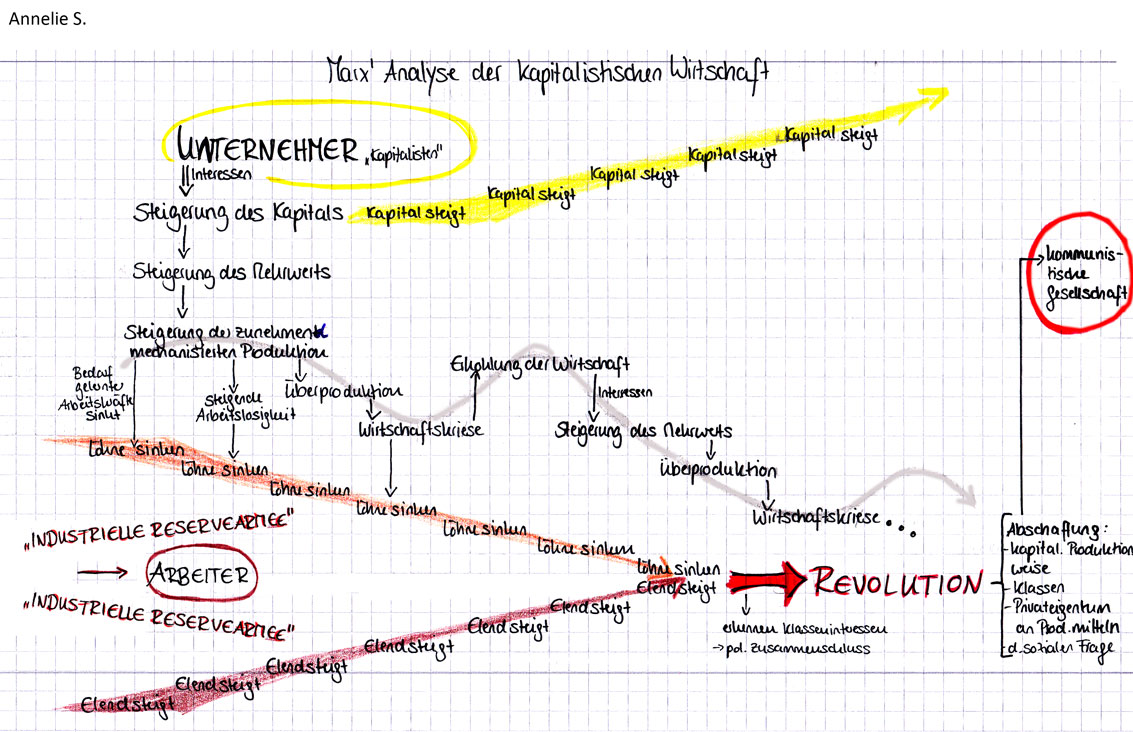 Annelie S.
Marx' Analyse der kapitalistischen Wirtschaft
UNTERNEHMER „Kapitalisten"
Interessen
Steigerung des Kapitals
Kapital steigt
Kapital steigt
Kapital steigt
Kapital steigt
Kapital steigt
Steigerung des Mehrwerts
Steigerung der zunehmend
mechanisierten Produktion
Bedarf
gelernter
Arbeitskräfte
sinkt
steigende
Arbeitslosigkeit
Überproduktion
Wirtschaftskriese
Erholung der Wirtschaft
Interessen
Steigerung des Mehrwerts
Überproduktion
Wirtschaftskriese...
Löhne sinken
Löhne sinken
Löhne sinken
Löhne sinken
Löhne sinken
Löhne sinken
Löhne sinken
„INDUSTRIELLE RESERVEARMEE"
ARBEITER
„INDUSTRIELLE RESERVEARMEE"
Elend steigt
Elend steigt
Elend steigt
Elend steigt
Elend steigt
Elend steigt
Elend steigt
REVOLUTION
erkennen Klasseninteressen
→ pol. Zusammenschluss
Abschaffung:
- kapital. Produktions
weise
- Klassen
- Privateigentum
an Prod.mitteln
- d. sozialen Frage
kommunis-
tische
Gesellschaft